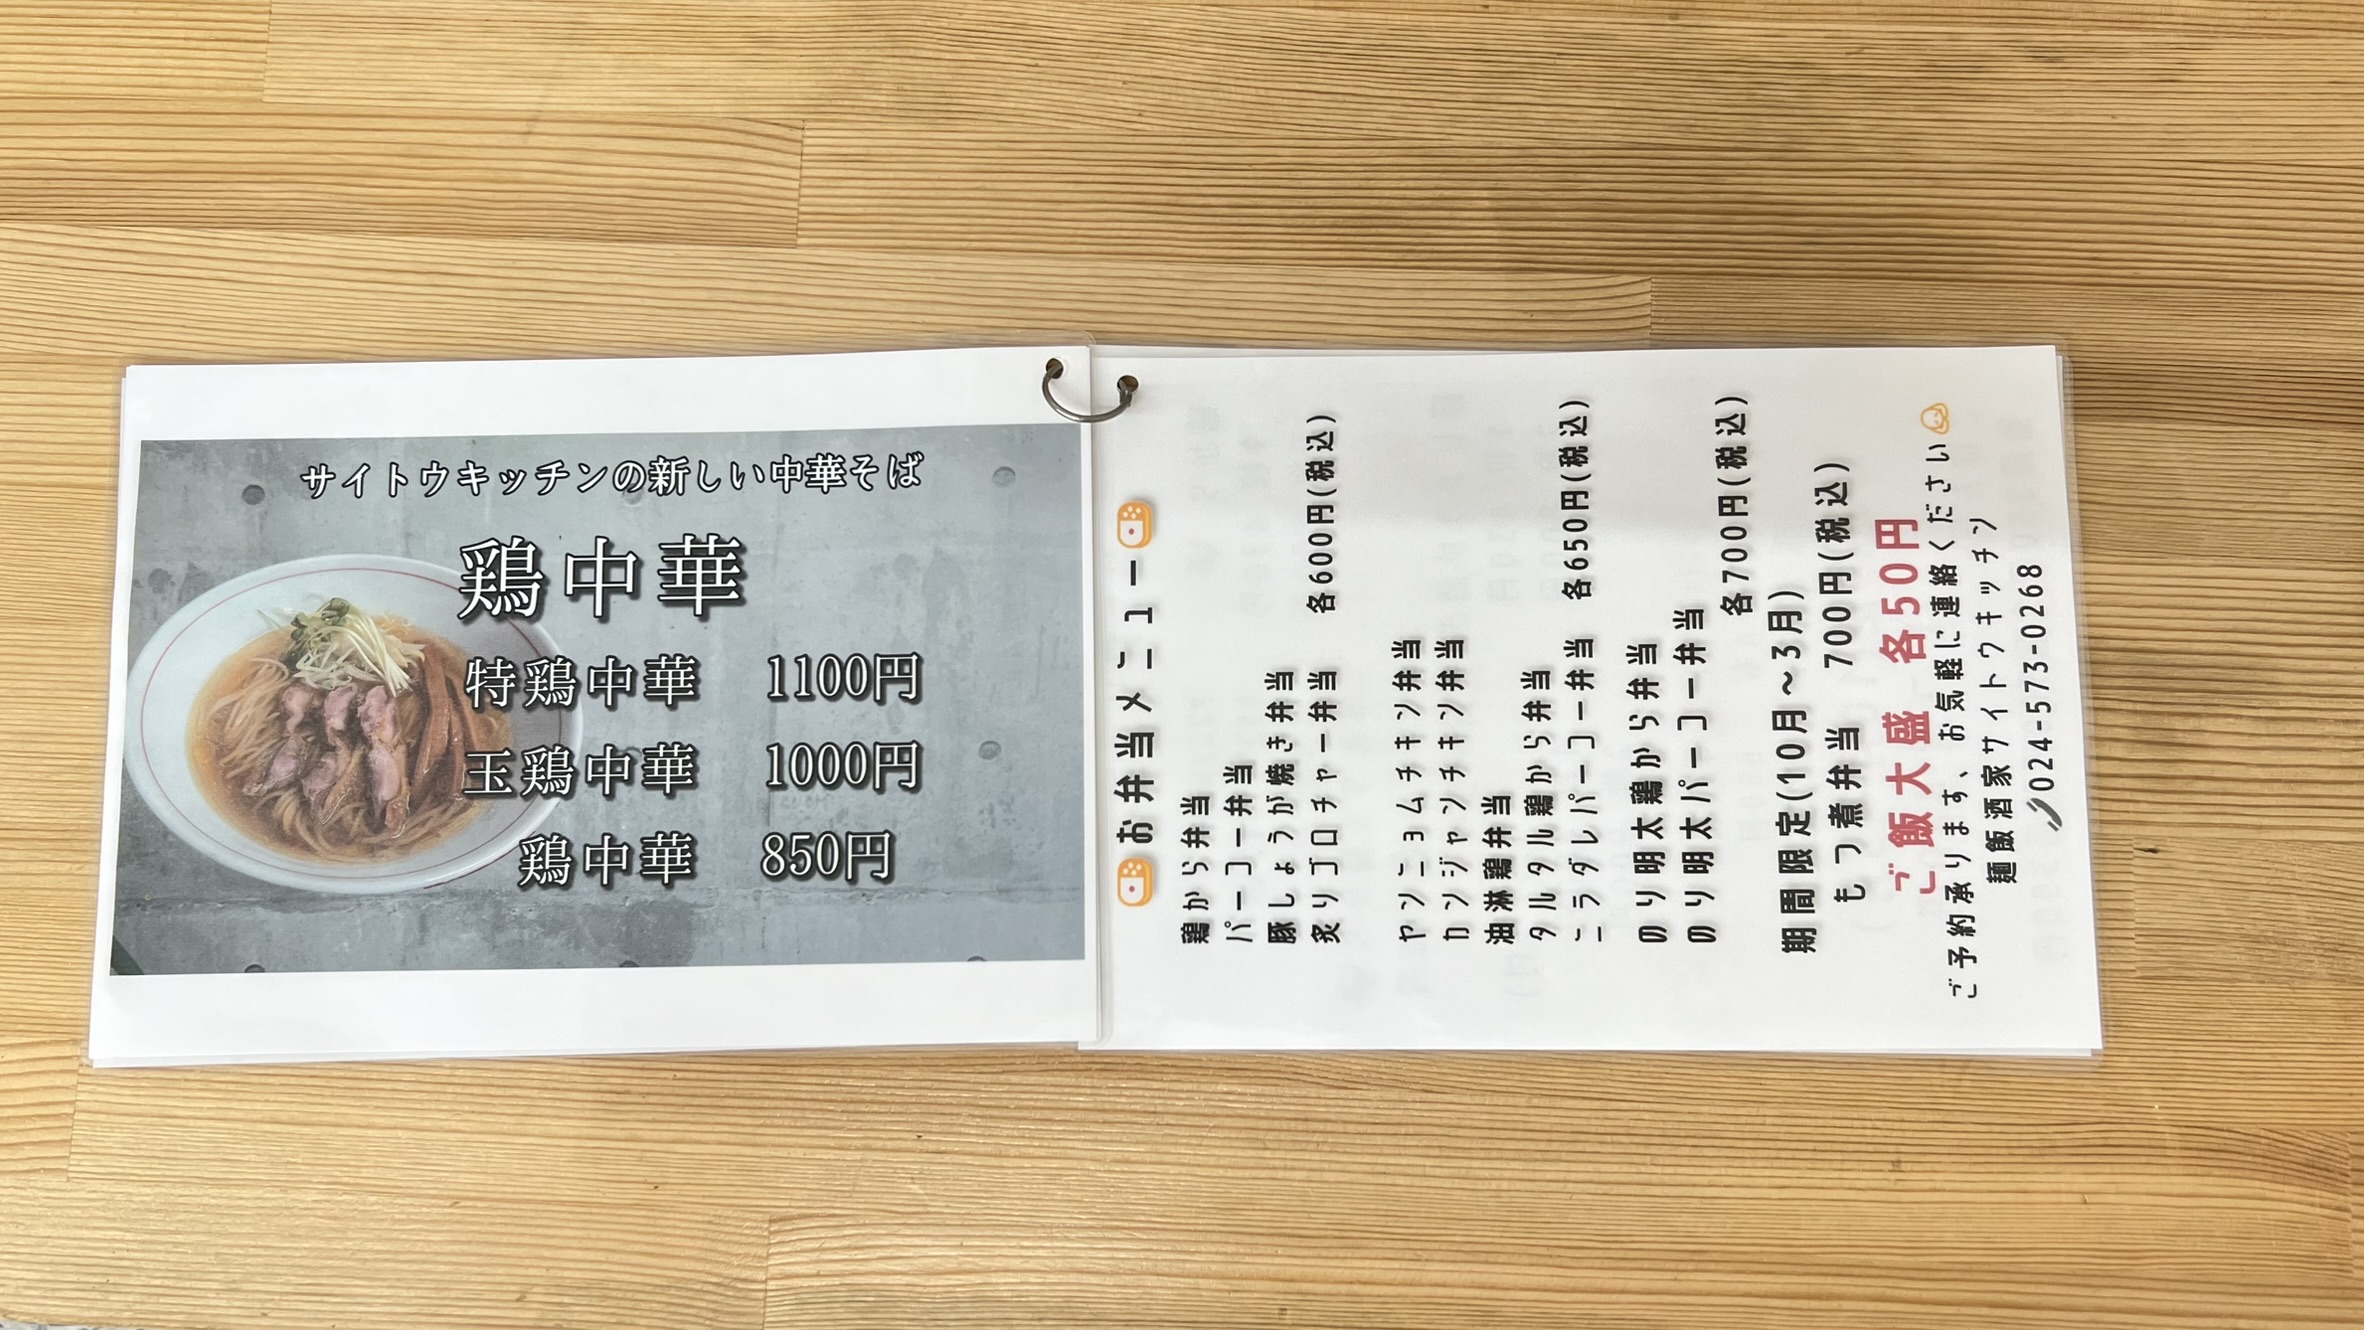 サイトウキッチンの新しい中華そば
鶏中華
特鶏中華 1100円
玉鶏中華 1000円
鶏中華 850円
お弁当メニュー
鶏から弁当
パーコー弁当
豚しょうが焼き弁当
炙りゴロチャー弁当
各600円(税込)
ヤンニョムチキン弁当
カンジャンチキン弁当
油淋鶏弁当
タルタル鶏から弁当
ニラダレパーコー弁当
各650円(税込)
のり明太鶏から弁当
のり明太パーコー弁当
各700円(税込)
期間限定(10月～3月)
もつ煮弁当 700円(税込)
ご飯大盛 各50円
ご予約承ります、お気軽に連絡ください
麺飯酒家サイトウキッチン
024-573-0268